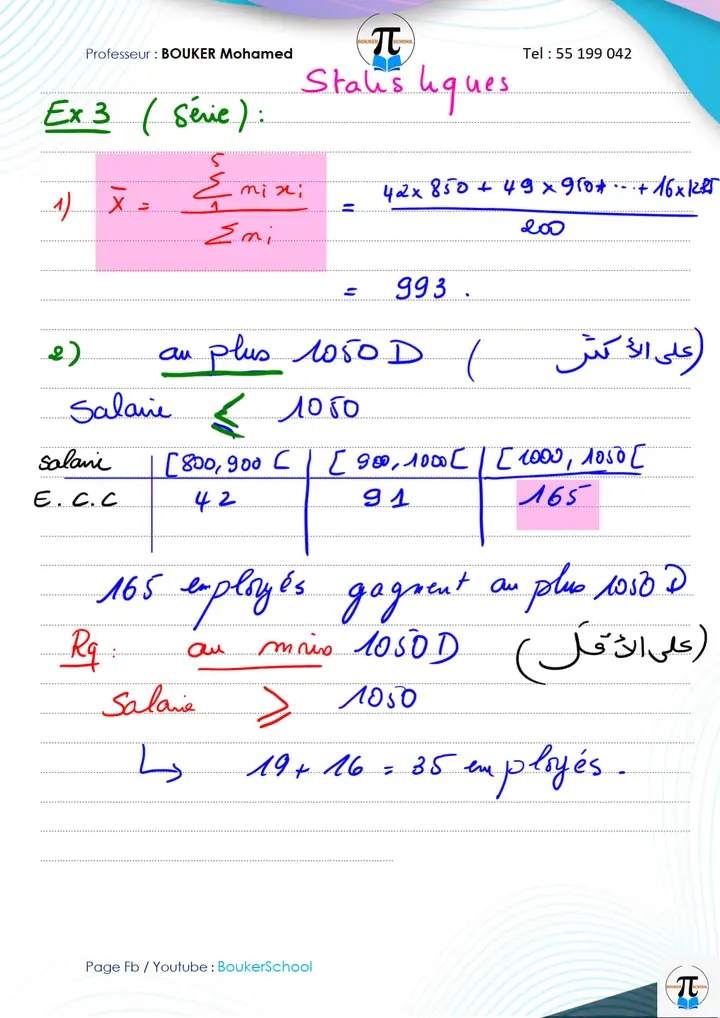 Professeur : BOUKER Mohamed
BOUKER SCHOOL
π
Tel : 55 199 042
Statistiques
Ex 3 ( Série ) :
1) x̄ = 5 Σ 1 ni xi / Σ ni = 42 x 850 + 49 x 950 + ... + 16 x / 200
= 993 .
2) au plus 1050 D ( على الأكثر )
Salaire ≤ 1050
salaire | [800, 900 [ | [ 900, 1000 [ | [ 1000, 1050 [
E. C. C 42 91 165
165 employés gagnent au plus 1050 D
Rq : au moins 1050 D ( على الأقل )
Salaire ≥ 1050
↳ 19 + 16 = 35 employés .
Page Fb / Youtube : BoukerSchool
π